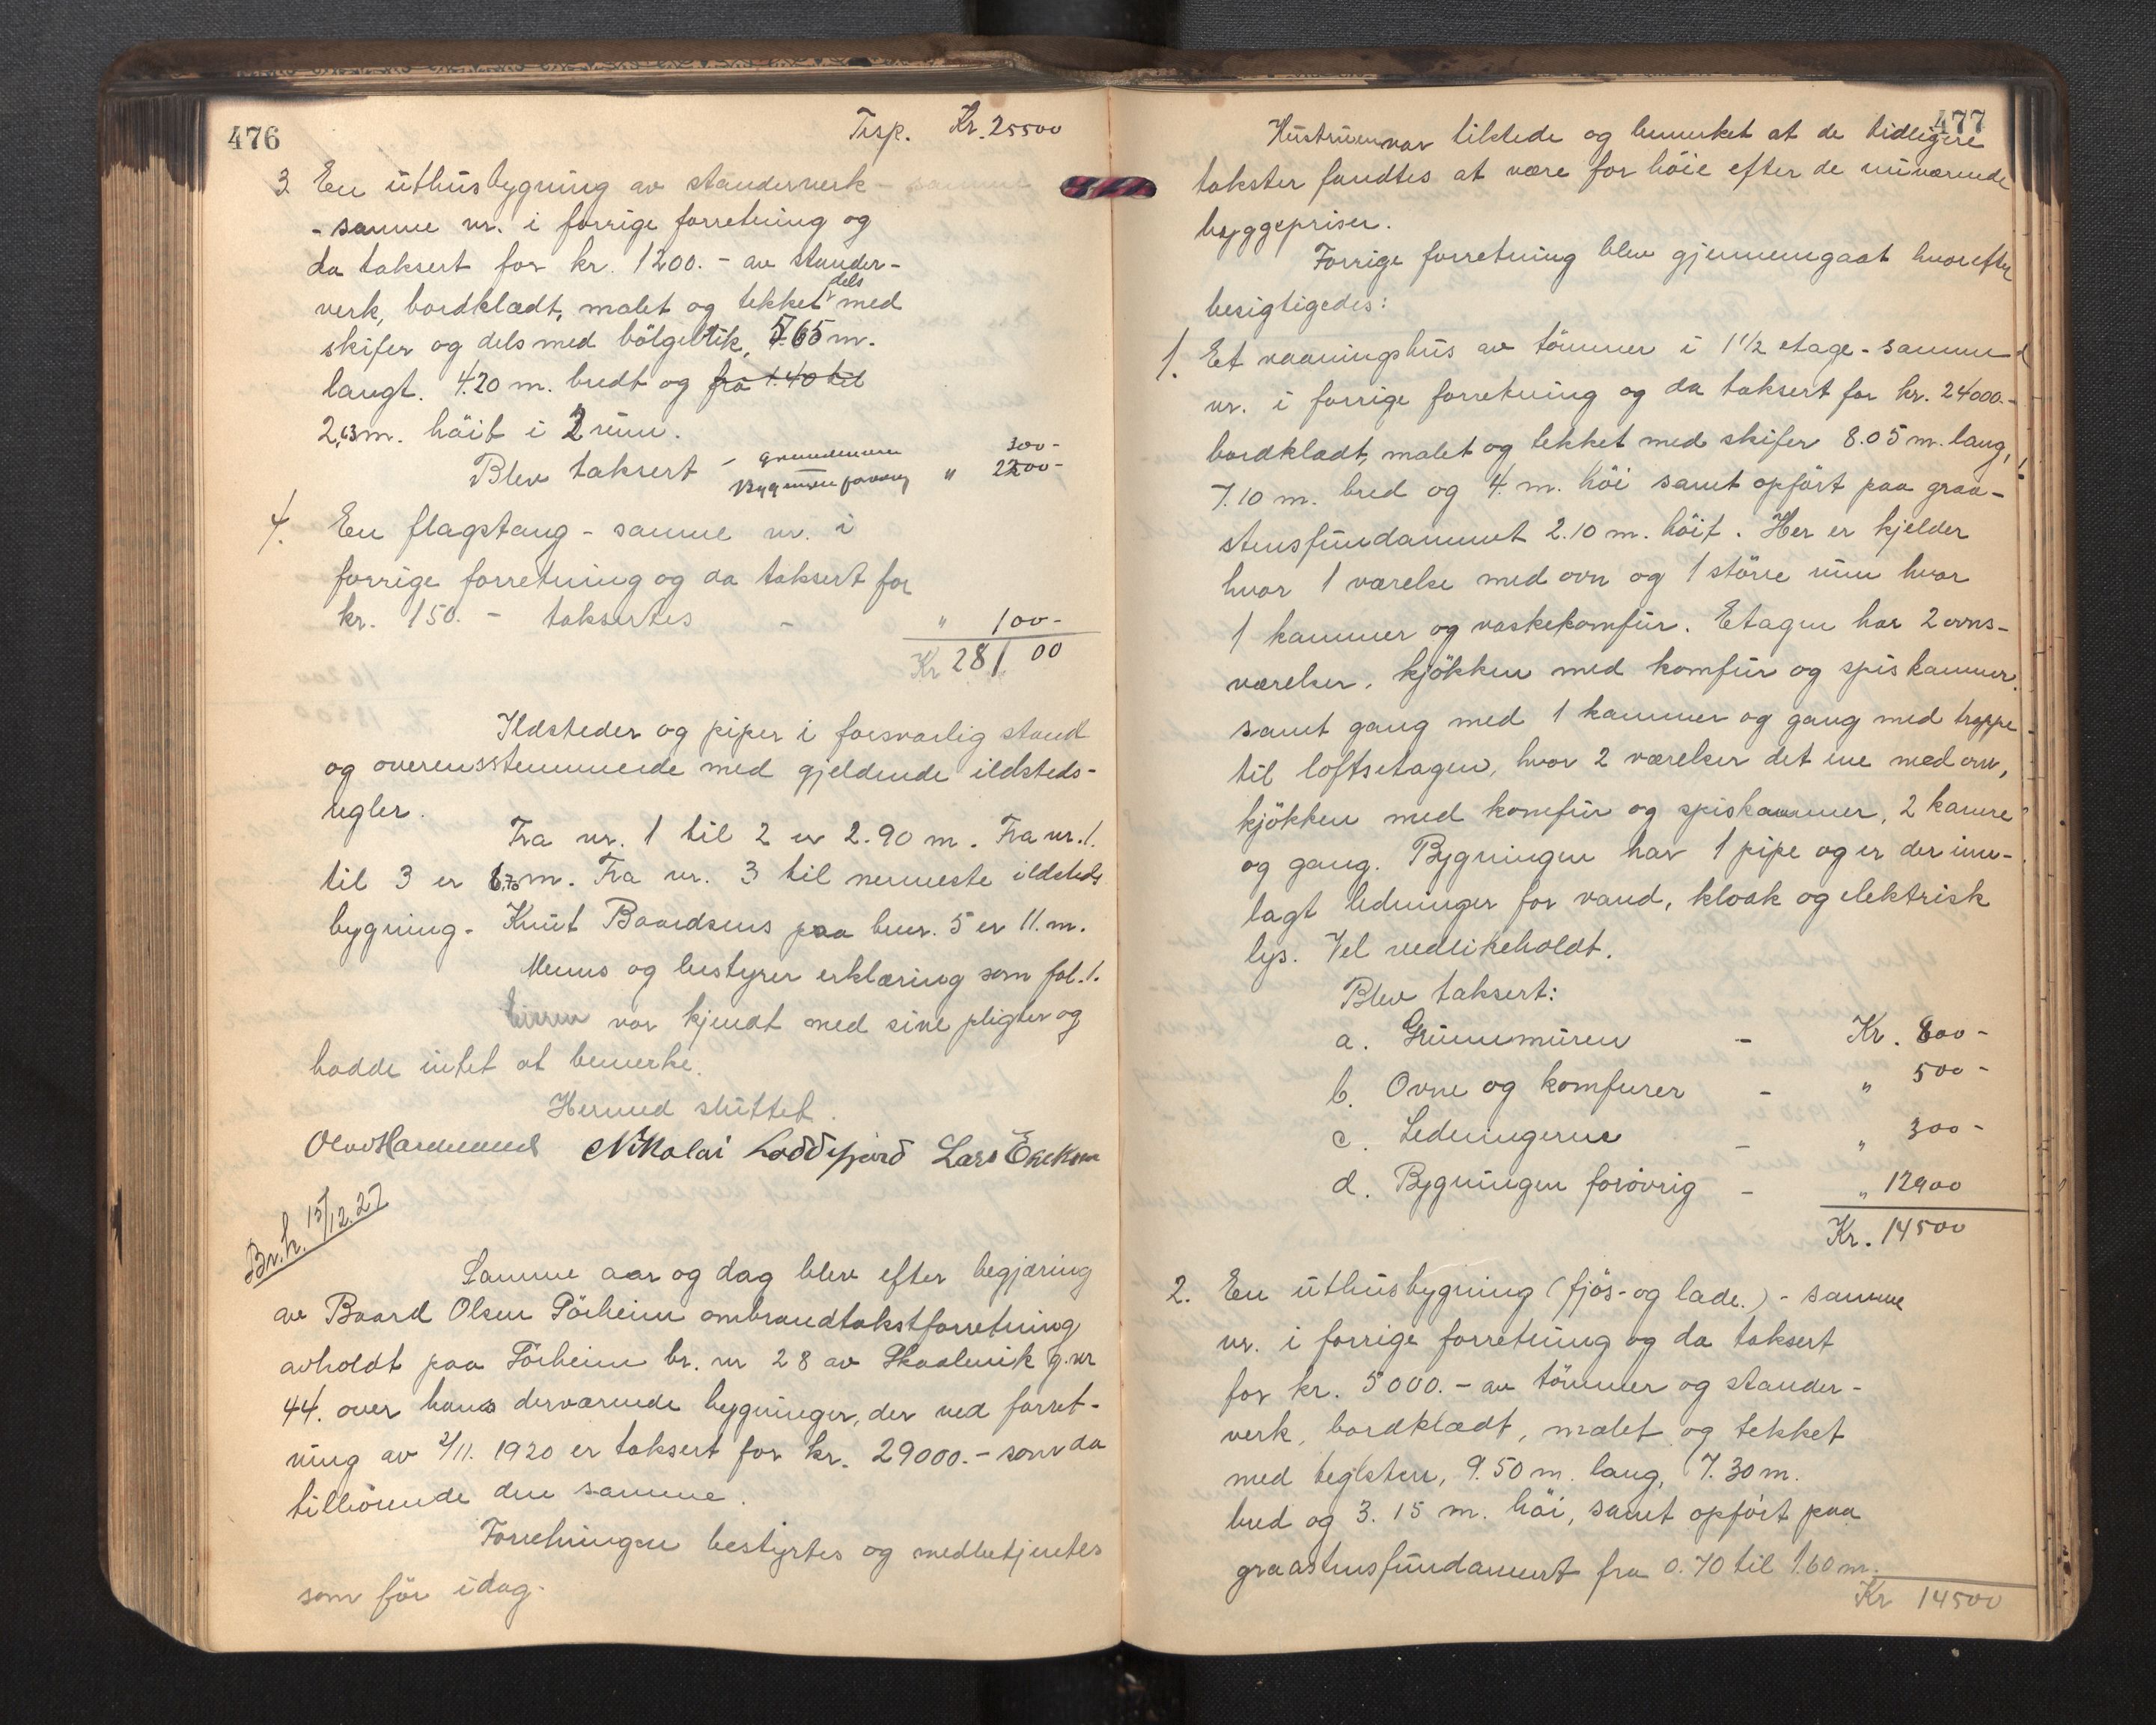 476
Trsp. Kr. 25500
3 En uthusbygning av standerverk -
- samme nr. i forrige forretning og
da taksert for kr. 1200. - av stander-
verk, bordklædt, malet og tekket dels med
skifer og dels med bölgeblik, 5.65 m.
langt. 4.20 m. bredt og fra 1.40 til
2,13 m. höit i 2 rum.
Blev taksert - grundmuren 300-
Bygningen forøvrig " 2200-
4. En flagstang - samme nr. i
forrige forretning og da taksert for
kr. 150. - taksertes - " 100-
Kr 28100
Ildsteder og piper i forsvarlig stand
og overensstemmende med gjeldende ildsteds-
regler.
Fra nr. 1 til 2 er 2.90 m. Fra nr. 1.
til 3 er 6,70 m. Fra nr. 3 til nermeste ildsteds
bygning - Knut Baardsens paa bnr. 5 er 11. m.
Mens og bestyrer erklæring som fol. 1.
Eieren var kjendt med sine pligter og
hadde intet at bemerke.
Hermed sluttet.
Nikolai Loddefjord Lars
Br.h. 15/12.27
Samme aar og dag blev efter begjæring
av Baard Olsen Törheim ombrandtakstforretning
avholdt paa Törheim br. nr 28 av Skaalevik g. nr
44. over hans derværende bygninger, der ved forret-
ning av 2/11. 1920 er taksert for kr. 29000. - som da
tilhörende den samme.
Forretningen bestyrtes og medbetjentes
som för idag.
477
Hustruen var tilstede og bemerket at de tidligere
takster fandtes at være for höie efter de nuværende
byggepriser.
Forrige forretning blev gjennemgaat hvorefter
besigtigedes:
1. Et vaaningshus av tömmer i 1 1/2 etage - samme
nr. i forrige forretning og da taksert for kr. 24000. -
bordklædt, malet og tekket med skifer 8.05 m. lang,
7.10 m. bred og 4. m. höi samt opfört paa graa-
stensfundament 2.10 m. höit. Her er kjelder
hvor 1 værelse med ovn og 1 större rum hvor
1 kammer og vaskekomfur. Etagen har 2 ovns-
værelser, kjökken med komfur og spiskammer.
samt gang med 1 kammer og gang med trappe
til loftsetagen, hvor 2 værelser det ene med ovn,
kjökken med komfur og spiskammer, 2 kamre
og gang. Bygningen har 1 pipe og er der inn-
lagt ledninger for vand, kloak og elektrisk
lys. Vel vedlikeholdt.
Blev taksert:
a. Grunnmuren - Kr. 800-
b. Ovne og komfurer - " 500-
c. Ledningerne - " 300-
d. Bygningen forövrig - " 12900
Kr. 14500
2. En uthusbygning (fjös- og lade.) - samme
nr. i forrige forretning og da taksert
for kr. 5000. - av tömmer og stander-
verk, bordklædt, malet og tekket
med teglsten, 9.50 m. lang, 7.30 m.
bred og 3.15 m. höi, samt opfört paa
graastensfundament fra 0.70 til 1.60 m.
Kr 14500